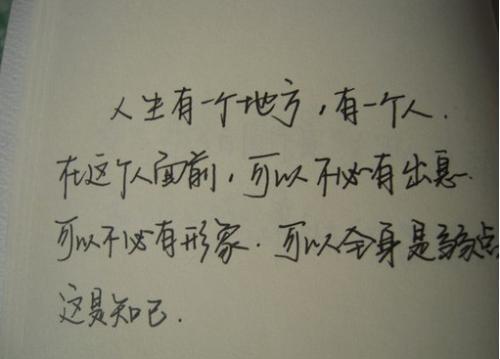 人生有一个地方，有一个人．
在这个人面前，可以不必有出息．
可以不必有形象．可以全身是弱点
这是知己．